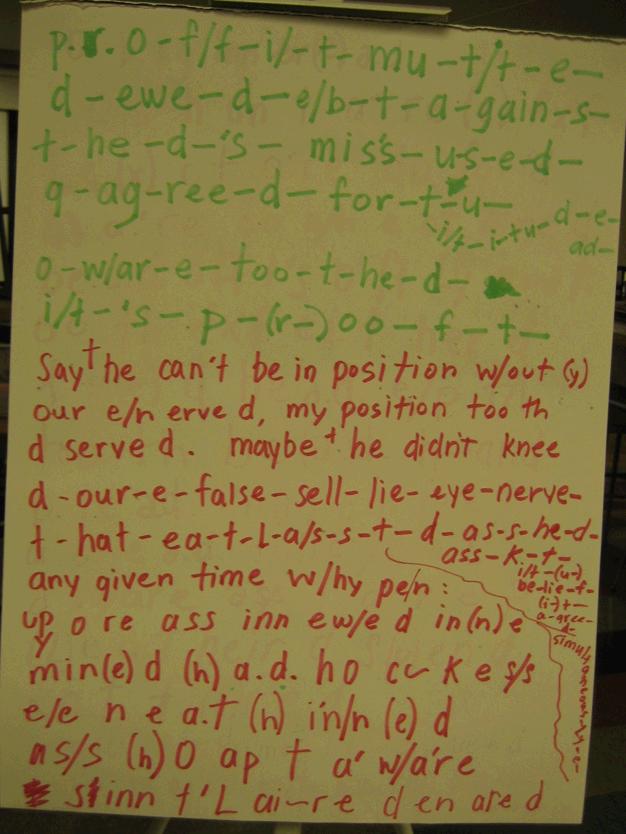 p.r.o-f/f-i/-t- mu-t/t-e-
d-ewe-d-e/b-t-a-gain-s-
t-he-d-'s- miss-u-s-e-d-
q-ag-ree-d-for-t-u-
i/t-i-tu- d-e-
ad-
o-w/ar-e-too-t-he-d-
i/t-'s-p-(r-)oo-f-t-
Say the can't be in position w/out (y)
our e/n erve d, my position too th
d serve d. maybe t he didn't knee
d-our-e-false-sell-lie-eye-nerve-
t-hat-ea-t-L-a/s-s-t-d-as-s-he-d-
ass-k-t-
i/t-(u-)
be-lie-f-
(i-)t-
a-gree-
d-
simul-t
aneous-ly-e-
any given time w/hy pe/n:
up o re ass inn ew/e d in(n)e
y
min(e) d (h) a.d. ho cu k e s/s
e/e n e a.t (h) in/n (e) d
as/s (h) o ap t a' w/a're
stinn t'L ai-re d en are d